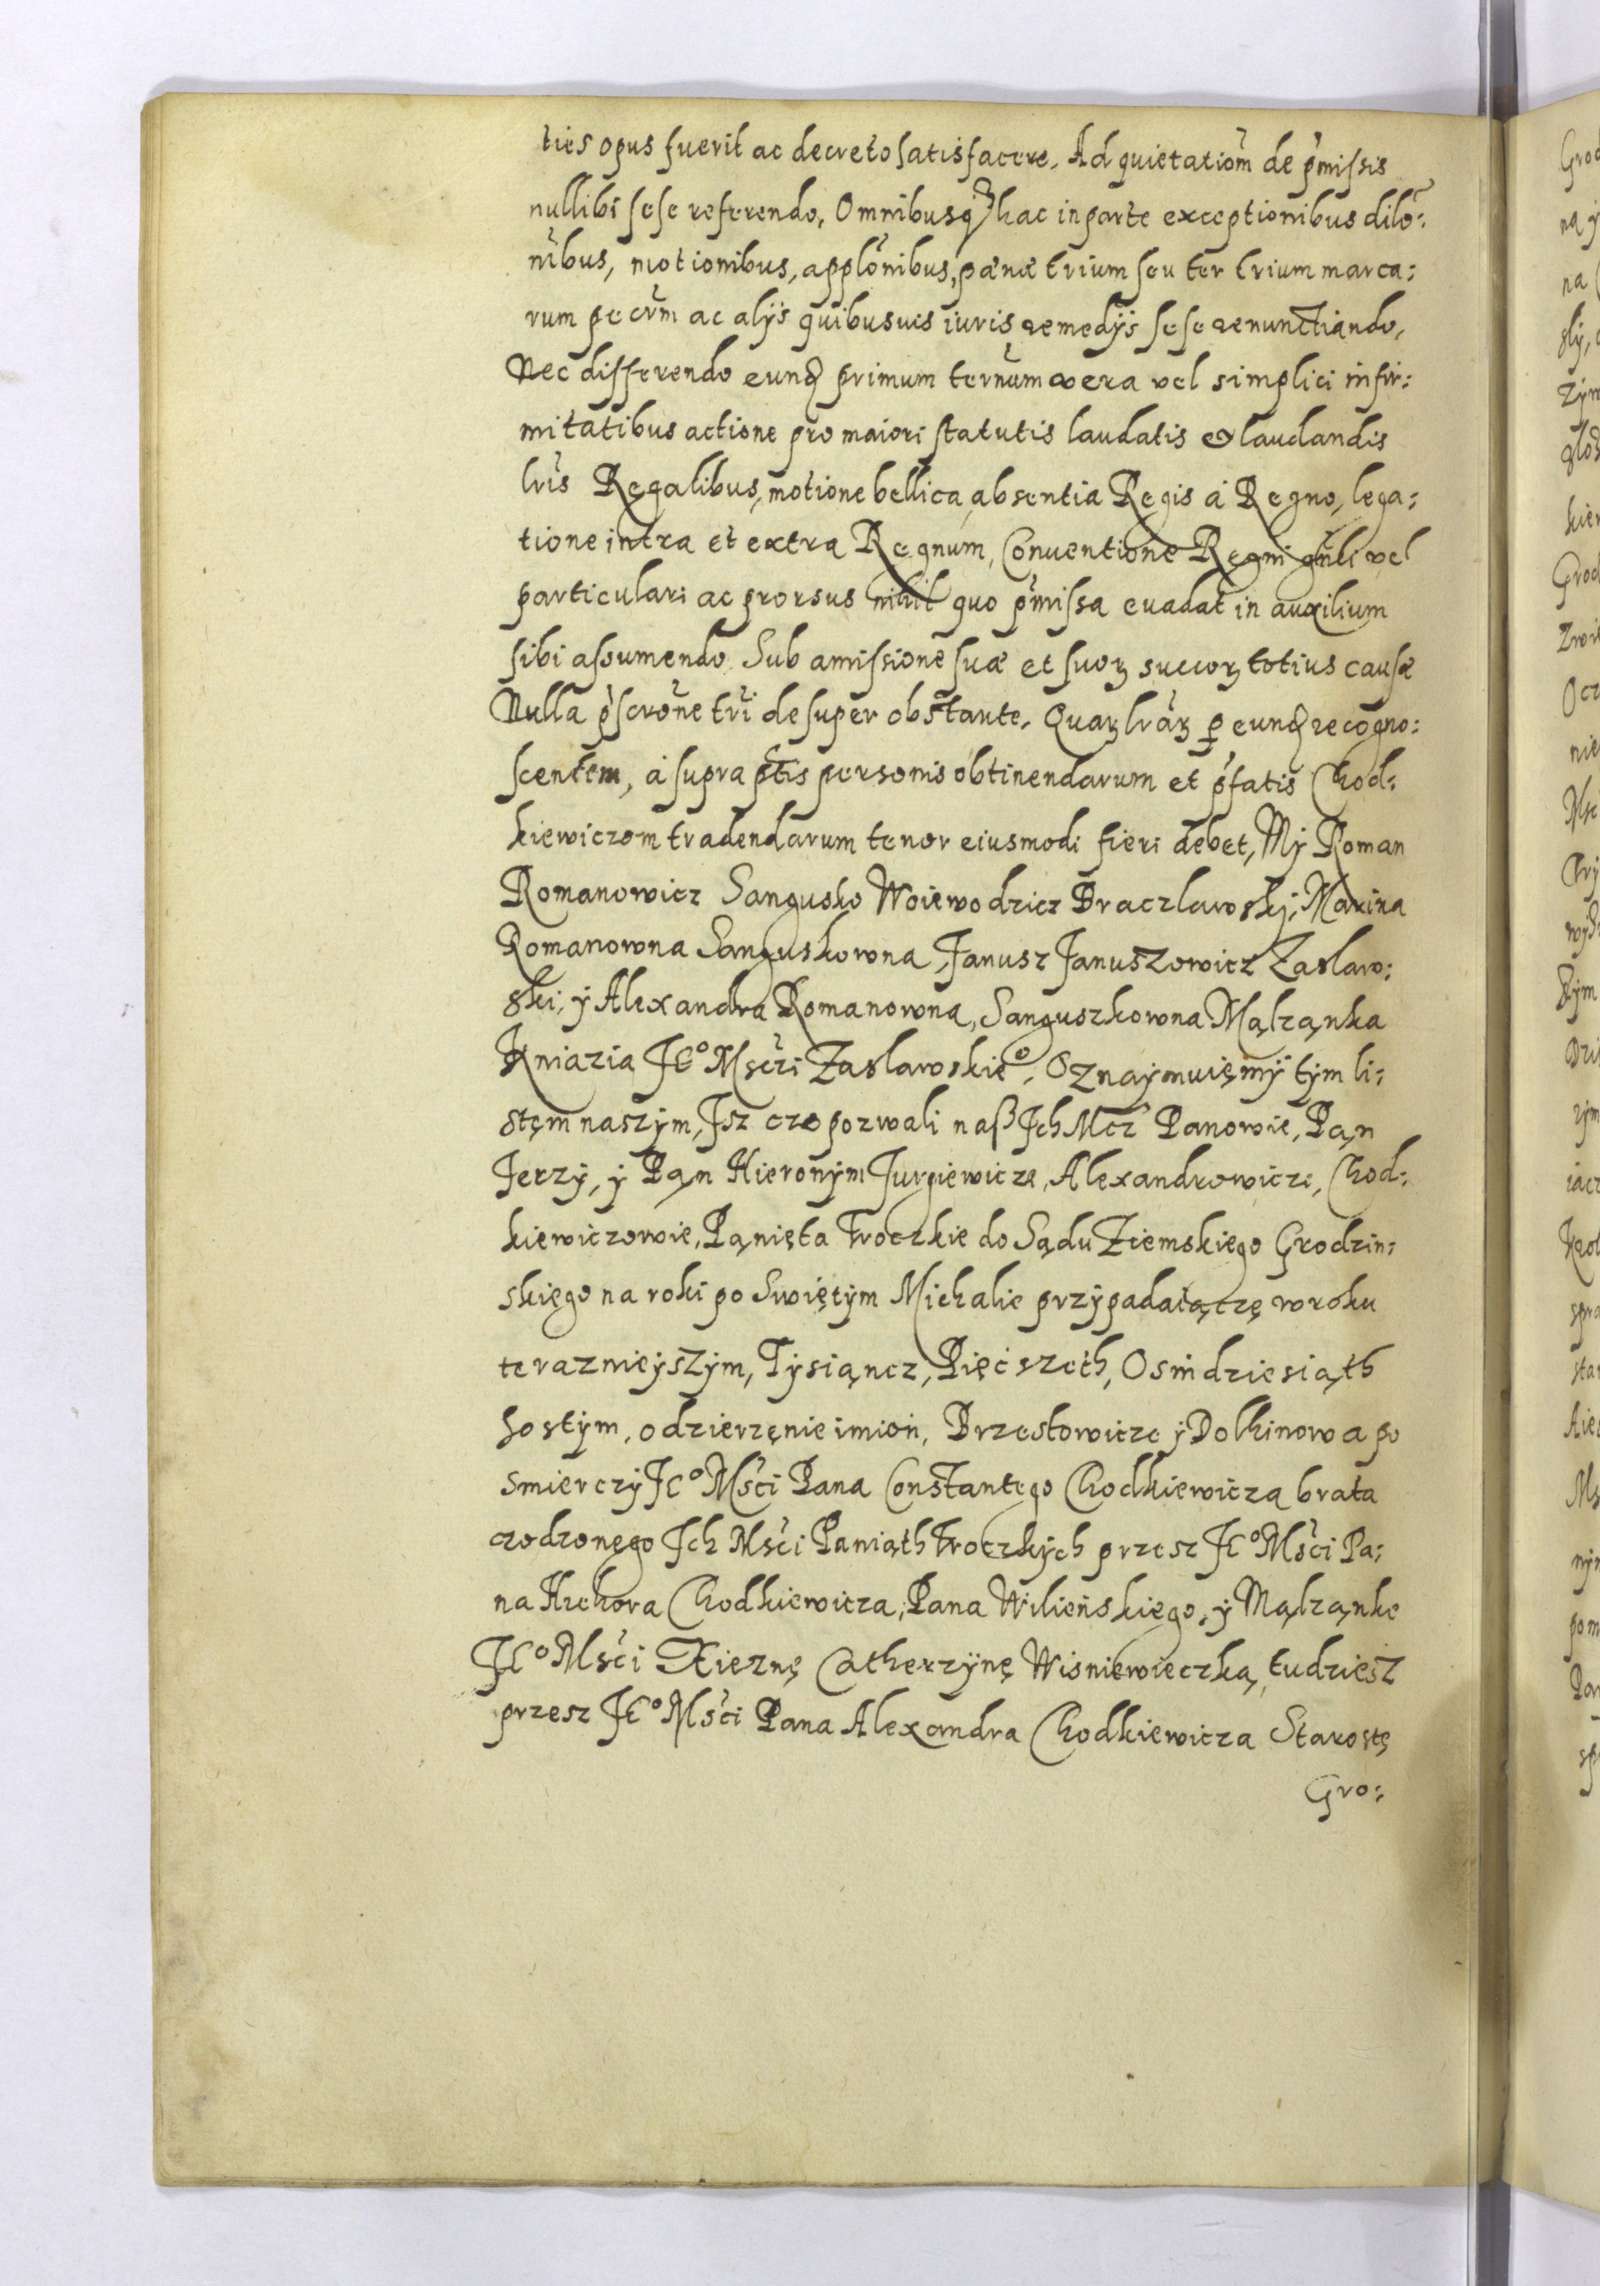 ties opus fuerit ac decreto satisfacere. Ad quietatiom̃ de p̃missis
nullibi sese referendo, Omnibusq₃ hac in parte exceptionibus dilõ:
nibus, motionibus, applõnibus, pænæ trium seu ter trium marca:
rum pecr̃m ac alijs quibusuis iuris remedijs sese renunctiando,
Nec differendo eund primum terñum vera vel simplici infir:
mitatibus actione pro maiori statutis laudatis et laudandis
lr̃is Regalibus, motione bellica, absentia Regis á Regno, lega:
tione intra et extra Regnum, Conuentione Regni gñli vel
particulari ac prorsus nihil quo p̃missa euadat in auxilium
sibi assumendo. Sub amissione suæ et suoꝝ succoꝝ totius causæ
Nulla p̃scrõne tr̃i desuper obstante. Quaꝝ lrãꝝ ꝑ eund recogno:
scentem, á supra pt̃is personis obtinendarum et p̃fatis Chod:
kiewiczom tradendarum tenor eiusmodi fieri debet, Mÿ Roman
Romanowicz Sangusko Woiewodzicz Braczlawskj, Marina
Romanowna Sanguskowna, Janusz Januszowicz Zaslaw:
ski, ÿ Alexandra Romanowna, Sanguszkowna Mąlząnka
Kniazia JEº Msczi Zaslawskieº, Oznaÿmuięmÿ tÿm li:
stęm naszÿm, Jsz czo pozwali naß Jch Mcz Panowie, Pąn
Jerzÿ, ÿ Pąn Hieronÿm Jurgiewicze, Alexandrowicze, Chod:
kiewiczowie, Pąnięta Troczkie do Sądu Ziemskiego Grodzin:
skięgo na roki po Swiętÿm Michalie przÿpadaiączę w roku
terazniejszÿm, Tÿsiąncz, Pięć szeth, Osm̃dziesiąth
sostÿm, o dzierzęnie imion, Brzestowicze ÿ Dolhinowa po
smierczÿ JEº Mści Pana Constantego Chodkiewiczą brata
rodzonęgo Jch Mści Paniąth Troczkÿch przesz JEº Mści Pa:
na Hrehora Chodkiewicza, Pana Wilieńskięgo, ÿ Mąlząnke
JEº Mści Xieznę Catherzÿnę Wisniewieczką, tudziesz
przesz JEº Mści Pana Alexandra Chodkiewicza Starostę
Gro: